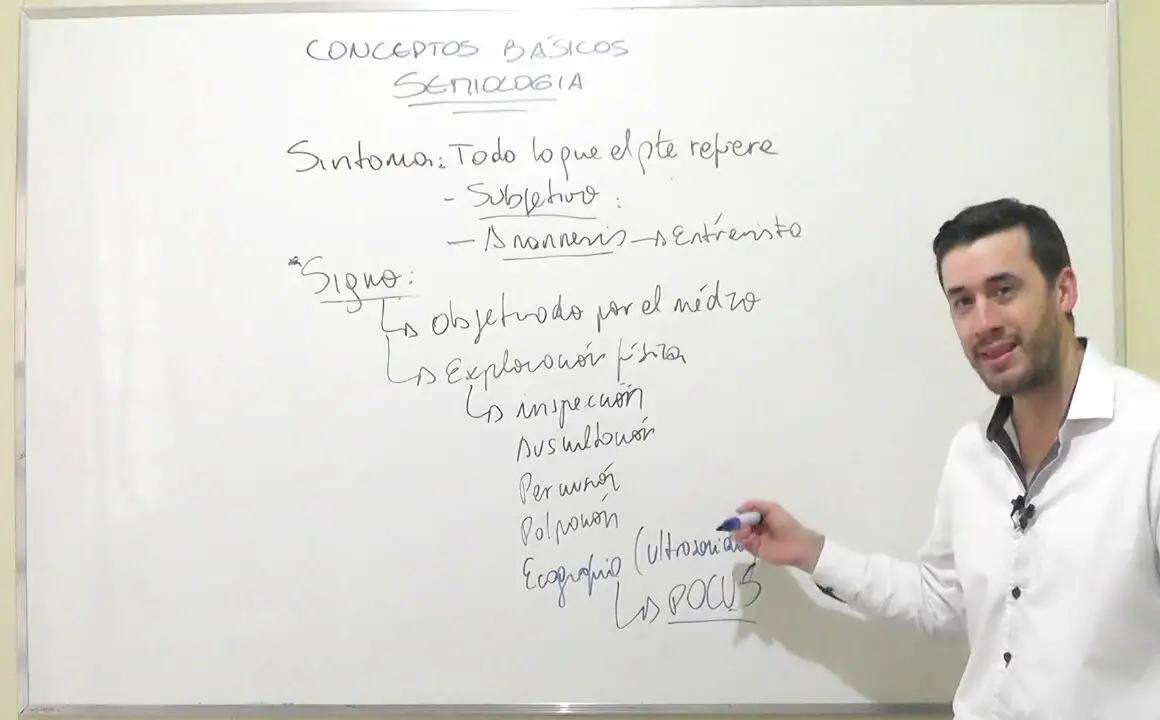 CONCEPTOS BÁSICOS
SEMIOLOGIA
Sintoma: Todo lo que el pte refiere
- Subjetivo:
- Anamnesis → Entrevista
*Signo:
↳ Objetivado por el médico
↳ Exploración física
↳ inspección
Auscultación
Percusión
Palpación
Ecografía (ultrasonido
↳ POCUS